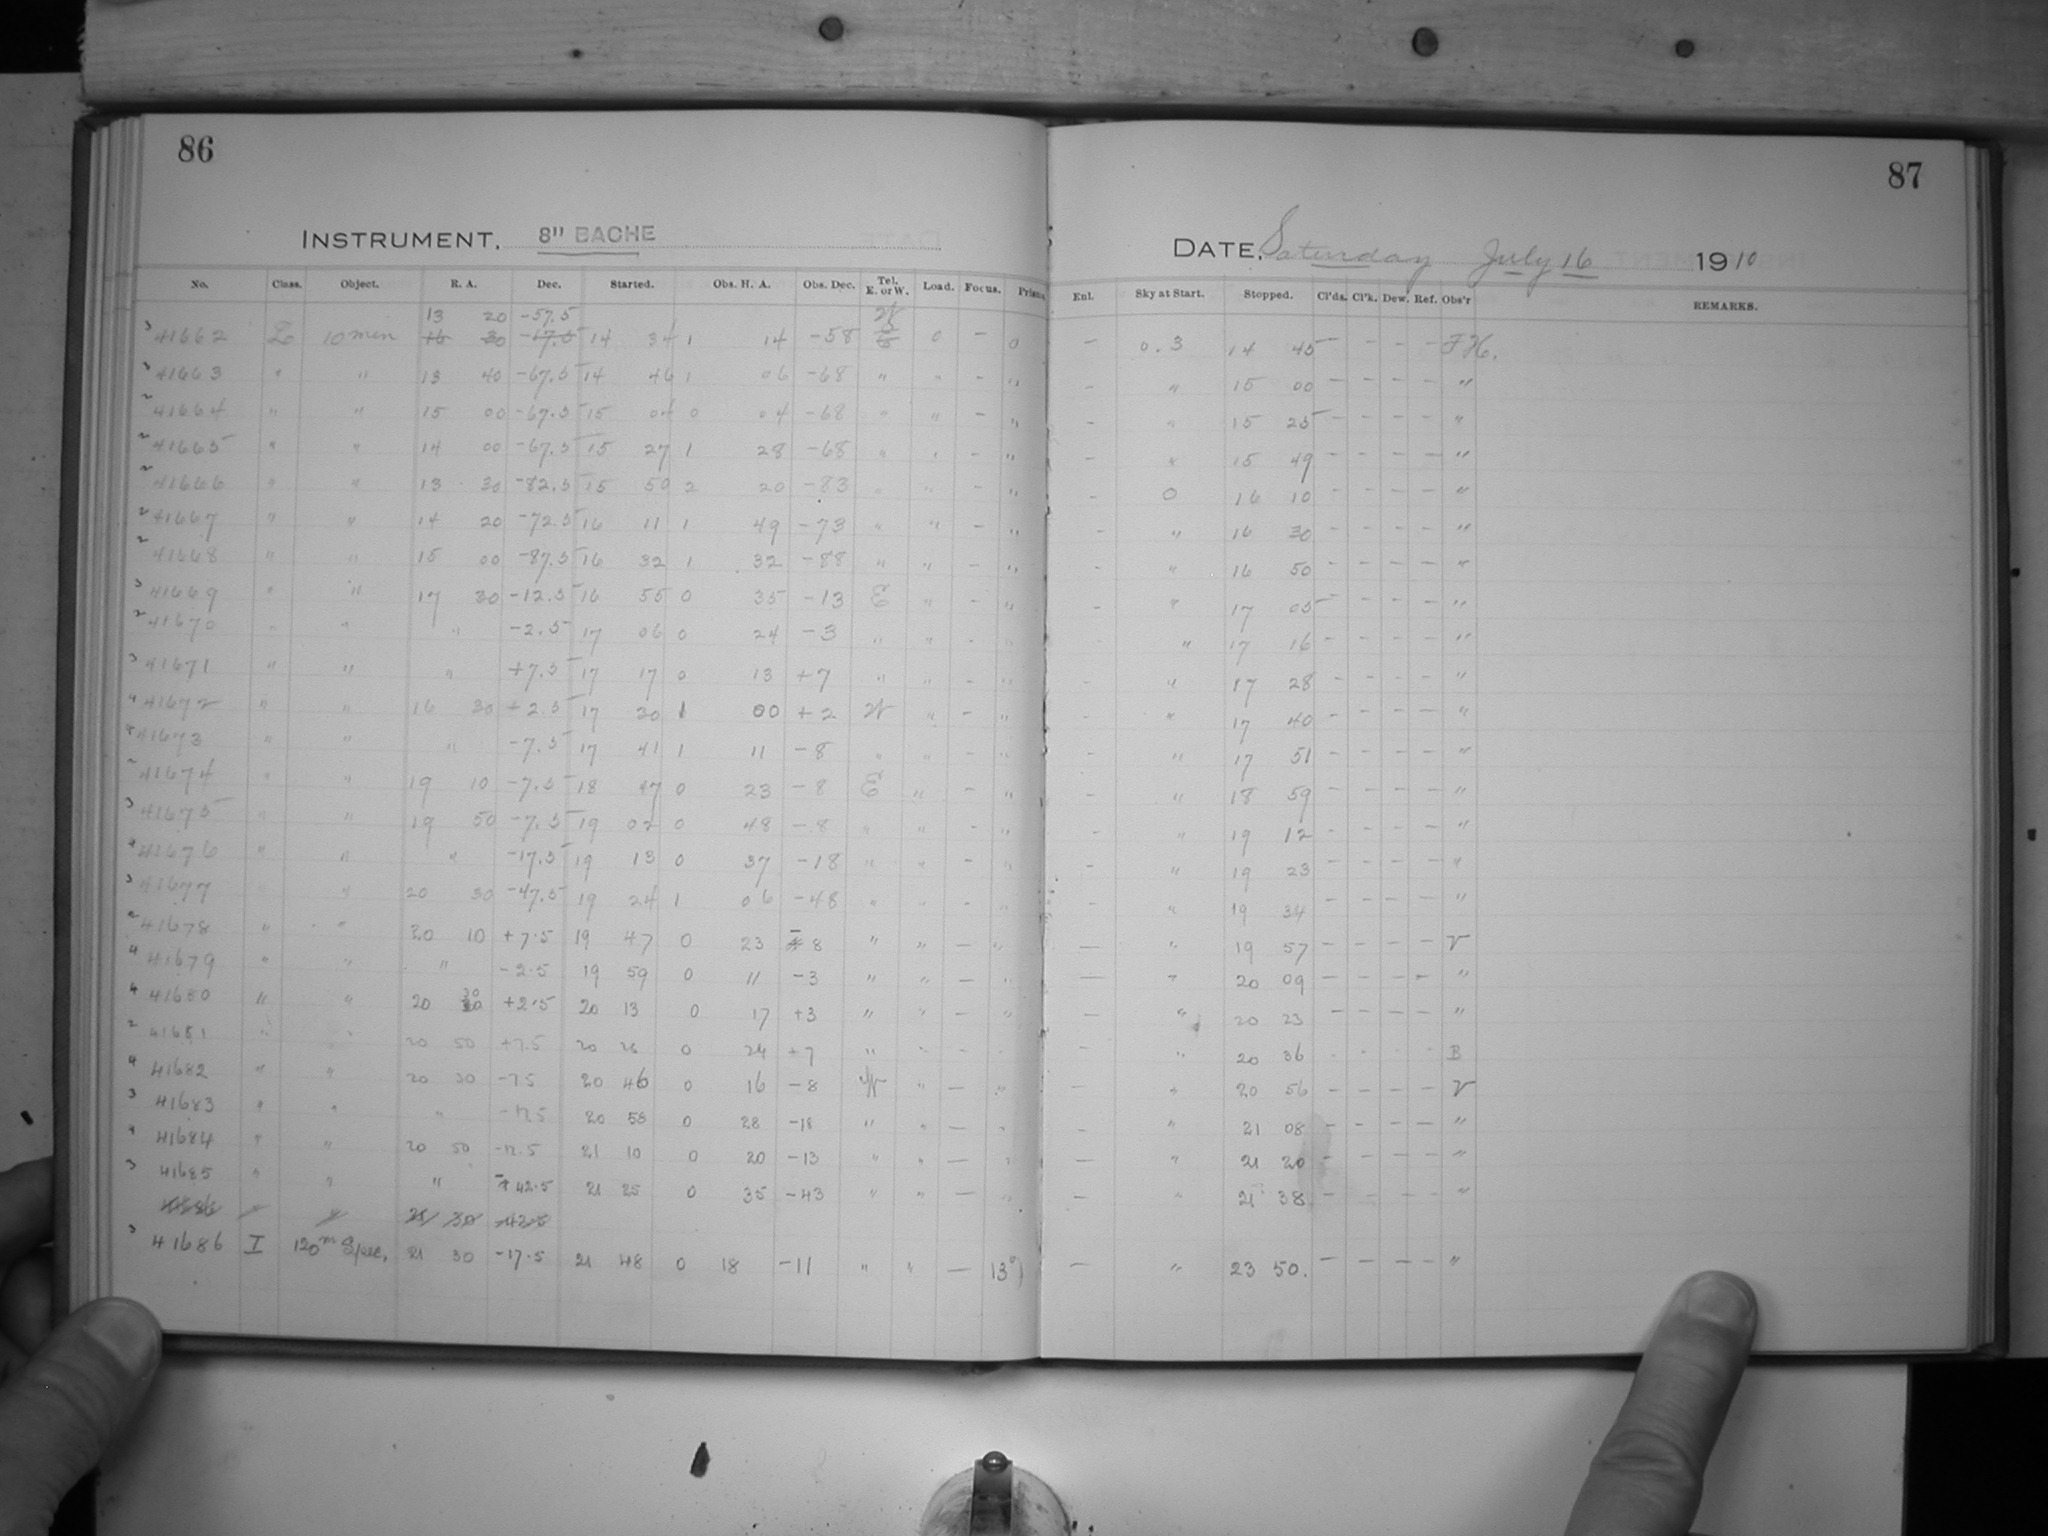 86
INSTRUMENT, 8" BACHE
No. Class. Object. R. A. Dec. Started. Obs. H. A. Obs. Dec. Tel. E. or W. Load. Focus. Prism.
13 20 -57.5 W
3 41662 L 10 min 14 34 1 14 -58 0 - 0
3 41663 " " 13 40 -67.5 14 46 1 06 -68 " " - "
2 41664 " " 15 00 -67.5 15 04 0 04 -68 " " - "
2 41665 " " 14 00 -67.5 15 27 1 28 -68 " " - "
2 41666 " " 13 30 -82.5 15 50 2 20 -83 " " - "
2 41667 " " 14 20 -72.5 16 11 1 49 -73 " " - "
2 41668 " " 15 00 -87.5 16 32 1 32 -88 " " - "
3 41669 " " 17 30 -12.5 16 55 0 35 -13 E " - "
2 41670 " " " -2.5 17 06 0 24 -3 " " - "
3 41671 " " " +7.5 17 17 0 13 +7 " " - "
4 41672 " " 16 30 +2.5 17 30 1 00 +2 W " - "
41673 " " " -7.5 17 41 1 11 -8 " " - "
2 41674 " " 19 10 -7.5 18 47 0 23 -8 E " - "
3 41675 " " 19 50 -7.5 19 02 0 48 -8 " " - "
4 41676 " " " -17.5 19 13 0 37 -18 " " - "
3 41677 " " 20 30 -47.5 19 24 1 06 -48 " " - "
2 41678 " " 20 10 +7.5 19 47 0 23 8 " " - "
4 41679 " " " -2.5 19 59 0 11 -3 " " - "
4 41680 " " 20 30 +2.5 20 13 0 17 +3 " " - "
2 41681 " " 20 50 +7.5 20 26 0 24 +7 " " - "
4 41682 " " 20 30 -7.5 20 46 0 16 -8 W " - "
3 41683 " " " -17.5 20 58 0 28 -18 " " - "
4 41684 " " 20 50 -12.5 21 10 0 20 -13 " " - "
3 41685 " " " -42.5 21 25 0 35 -43 " " - "
3 41686 I 120m Spec. 21 30 -17.5 21 48 0 18 -11 " " - 13°
87
DATE, Saturday July 16 1910
Enl. Sky at Start. Stopped. Cl'ds. Cl'k. Dew. Ref. Obs'r REMARKS.
- 0.3 14 45 - - - - FH.
- " 15 00 - - - - "
- " 15 25 - - - - "
- " 15 49 - - - - "
- 0 16 10 - - - - "
- " 16 30 - - - - "
- " 16 50 - - - - "
- " 17 05 - - - - "
" 17 16 - - - - "
- " 17 28 - - - - "
- " 17 40 - - - - "
- " 17 51 - - - - "
- " 18 59 - - - - "
- " 19 12 - - - - "
- " 19 23 - - - - "
- " 19 34 - - - - "
- " 19 57 - - - - V
- " 20 09 - - - - "
- " 20 23 - - - - "
- " 20 36 - - - - B
- " 20 56 - - - - V
- " 21 08 - - - - "
- " 21 20 - - - - "
- " 21 38 - - - - "
- " 23 50. - - - - "